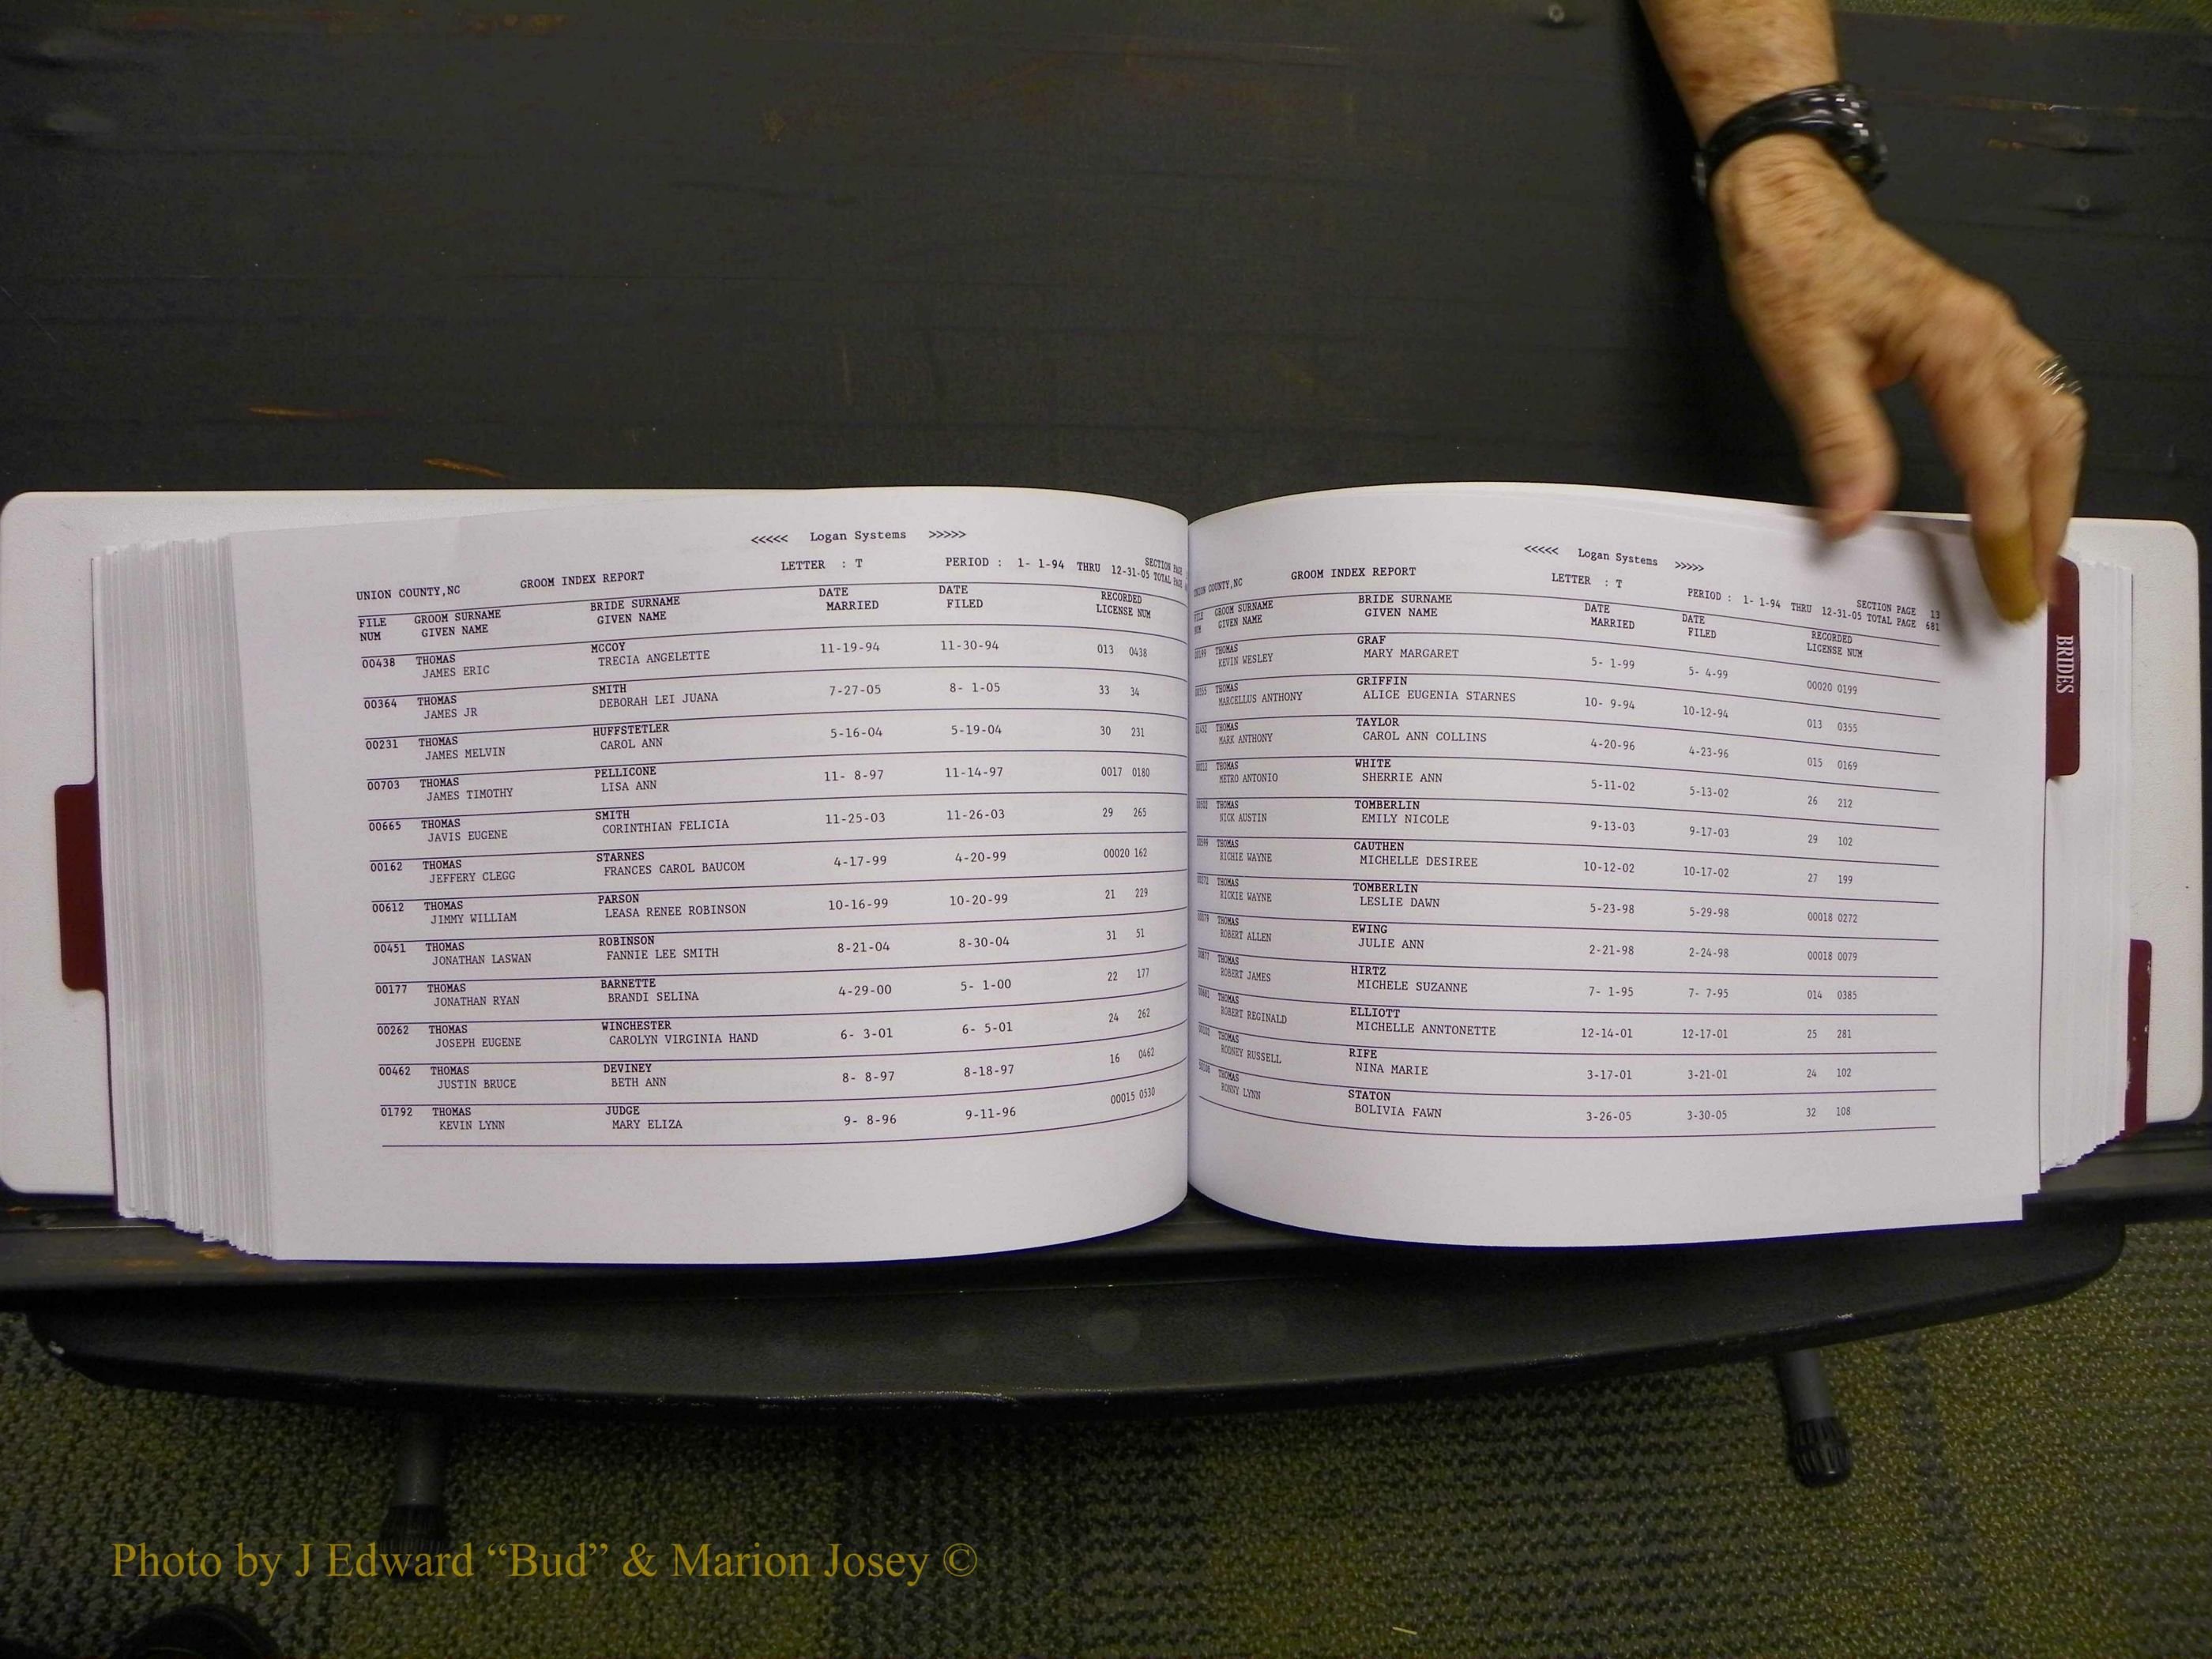 <<<<< Logan Systems >>>>>
UNION COUNTY,NC GROOM INDEX REPORT LETTER : T PERIOD : 1- 1-94 THRU 12-31-05 SECTION PAGE
TOTAL PAGE
FILE GROOM SURNAME BRIDE SURNAME DATE DATE RECORDED
NUM GIVEN NAME GIVEN NAME MARRIED FILED LICENSE NUM
00438 THOMAS MCCOY 11-19-94 11-30-94 013 0438
JAMES ERIC TRECIA ANGELETTE
00364 THOMAS SMITH 7-27-05 8- 1-05 33 34
JAMES JR DEBORAH LEI JUANA
00231 THOMAS HUFFSTETLER 5-16-04 5-19-04 30 231
JAMES MELVIN CAROL ANN
00703 THOMAS PELLICONE 11- 8-97 11-14-97 0017 0180
JAMES TIMOTHY LISA ANN
00665 THOMAS SMITH 11-25-03 11-26-03 29 265
JAVIS EUGENE CORINTHIAN FELICIA
00162 THOMAS STARNES 4-17-99 4-20-99 00020 162
JEFFERY CLEGG FRANCES CAROL BAUCOM
00612 THOMAS PARSON 10-16-99 10-20-99 21 229
JIMMY WILLIAM LEASA RENEE ROBINSON
00451 THOMAS ROBINSON 8-21-04 8-30-04 31 51
JONATHAN LASWAN FANNIE LEE SMITH
00177 THOMAS BARNETTE 4-29-00 5- 1-00 22 177
JONATHAN RYAN BRANDI SELINA
00262 THOMAS WINCHESTER 6- 3-01 6- 5-01 24 262
JOSEPH EUGENE CAROLYN VIRGINIA HAND
00462 THOMAS DEVINEY 8- 8-97 8-18-97 16 0462
JUSTIN BRUCE BETH ANN
01792 THOMAS JUDGE 9- 8-96 9-11-96 00015 0530
KEVIN LYNN MARY ELIZA
<<<<< Logan Systems >>>>>
UNION COUNTY,NC GROOM INDEX REPORT LETTER : T PERIOD : 1- 1-94 THRU 12-31-05 SECTION PAGE 13
TOTAL PAGE 681
FILE GROOM SURNAME BRIDE SURNAME DATE DATE RECORDED
NUM GIVEN NAME GIVEN NAME MARRIED FILED LICENSE NUM
THOMAS GRAF 5- 1-99 5- 4-99 00020 0199
KEVIN WESLEY MARY MARGARET
THOMAS GRIFFIN 10- 9-94 10-12-94 013 0355
MARCELLUS ANTHONY ALICE EUGENIA STARNES
THOMAS TAYLOR 4-20-96 4-23-96 015 0169
MARK ANTHONY CAROL ANN COLLINS
THOMAS WHITE 5-11-02 5-13-02 26 212
METRO ANTONIO SHERRIE ANN
THOMAS TOMBERLIN 9-13-03 9-17-03 29 102
NICK AUSTIN EMILY NICOLE
THOMAS CAUTHEN 10-12-02 10-17-02 27 199
RICHIE WAYNE MICHELLE DESIREE
THOMAS TOMBERLIN 5-23-98 5-29-98 00018 0272
RICKIE WAYNE LESLIE DAWN
THOMAS EWING 2-21-98 2-24-98 00018 0079
ROBERT ALLEN JULIE ANN
THOMAS HIRTZ 7- 1-95 7- 7-95 014 0385
ROBERT JAMES MICHELE SUZANNE
THOMAS ELLIOTT 12-14-01 12-17-01 25 281
ROBERT REGINALD MICHELLE ANNTONETTE
THOMAS RIFE 3-17-01 3-21-01 24 102
RODNEY RUSSELL NINA MARIE
THOMAS STATON 3-26-05 3-30-05 32 108
RONNY LYNN BOLIVIA FAWN
BRIDES
Photo by J Edward “Bud” & Marion Josey ©